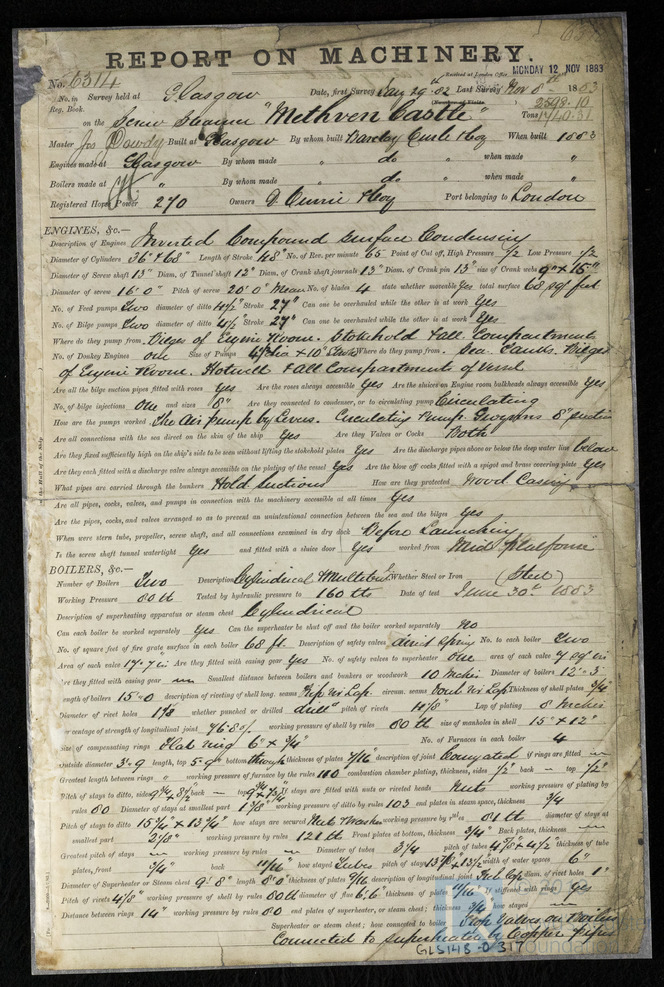 REPORT ON MACHINERY.
No. 6314
Received at London Office MONDAY 12 NOV 1883
No. in Reg. Book. Survey held at Glasgow Date, first Survey 29th 82 Last Survey Nov 8th 1883
on the Screw Steamer "Methven Castle" Tons
Master Built at Glasgow By whom built Barclay Curle & Coy When built 1883
Engines made at Glasgow By whom made " do " when made "
Boilers made at " By whom made " do " when made "
Registered Horse Power 270 Owners D. Currie & Coy Port belonging to London
ENGINES, &c.—
Description of Engines Inverted Compound Surface Condensing
Diameter of Cylinders 36" & 68" Length of Stroke 48" No. of Rev. per minute 65 Point of Cut off, High Pressure 1/2 Low Pressure 1/2
Diameter of Screw shaft 13" Diam. of Tunnel shaft 12" Diam. of Crank shaft journals 13" Diam. of Crank pin 13" size of Crank webs 9" × 15"
Diameter of screw 16'.0" Pitch of screw 20'.0" Mean No. of blades 4 state whether moveable yes total surface 68 sq feet
No. of Feed pumps Two diameter of ditto 4 1/2" Stroke 27" Can one be overhauled while the other is at work Yes
No. of Bilge pumps Two diameter of ditto 4 1/2" Stroke 27" Can one be overhauled while the other is at work Yes
Where do they pump from Bilges of Engine Room. Stokehold & all Compartments
No. of Donkey Engines one Size of Pumps × 10" Where do they pump from Sea. Tanks. Bilges
of Engine Room. Hotwell & all Compartments of Vessel
Are all the bilge suction pipes fitted with roses Yes Are the roses always accessible Yes Are the sluices on Engine room bulkheads always accessible Yes
No. of bilge injections One and sizes 8" Are they connected to condenser, or to circulating pump Circulating
How are the pumps worked The Air pump by Levers. Circulating Pump Gwynns 8" suction
Are all connections with the sea direct on the skin of the ship Yes Are they Valves or Cocks Both
Are they fixed sufficiently high on the ship's side to be seen without lifting the stokehold plates Yes Are the discharge pipes above or below the deep water line below
Are they each fitted with a discharge valve always accessible on the plating of the vessel Yes Are the blow off cocks fitted with a spigot and brass covering plate Yes
What pipes are carried through the bunkers Hold Suctions How are they protected Wood Casing
Are all pipes, cocks, valves, and pumps in connection with the machinery accessible at all times Yes
Are the pipes, cocks, and valves arranged so as to prevent an unintentional connection between the sea and the bilges Yes
When were stern tube, propeller, screw shaft, and all connections examined in dry dock Before Launching
Is the screw shaft tunnel watertight Yes and fitted with a sluice door Yes worked from Mid. platform
BOILERS, &c.—
Number of Boilers Two Description Cylindrical Multitubr Whether Steel or Iron (Steel)
Working Pressure 80 lb Tested by hydraulic pressure to 160 lbs Date of test June 30th 1883
Description of superheating apparatus or steam chest Cylindrical
Can each boiler be worked separately Yes Can the superheater be shut off and the boiler worked separately No
No. of square feet of fire grate surface in each boiler 68 ft. Description of safety valves direct spring No. to each boiler Two
Area of each valve 17.7 in Are they fitted with easing gear Yes No. of safety valves to superheater one area of each valve 7 sq in
are they fitted with easing gear Smallest distance between boilers and bunkers or woodwork 10 inches Diameter of boilers 12'.3"
length of boilers 15'.0 description of riveting of shell long. seams circum. seams Thickness of shell plates 3/4"
Diameter of rivet holes whether punched or drilled drilled pitch of rivets Lap of plating 8 inches
percentage of strength of longitudinal joint 76.8% working pressure of shell by rules 80 lb size of manholes in shell 15" × 12"
size of compensating rings Flat ring 6" × 3/4" No. of Furnaces in each boiler 4
outside diameter 3'.9 length, top 5'.9" bottom through thickness of plates 7/16" description of joint Corrugated if rings are fitted —
Greatest length between rings " working pressure of furnace by the rules combustion chamber plating, thickness, sides 1/2" back — top 1/2"
Pitch of stays to ditto, sides back — top If stays are fitted with nuts or riveted heads Nuts working pressure of plating by
rules 80 Diameter of stays at smallest part working pressure of ditto by rules 103 end plates in steam space, thickness 3/4
Pitch of stays to ditto 15 3/4 × 13 3/4" how stays are secured Nuts & Washrs working pressure by rules 81 lb diameter of stays at
smallest part 2 1/8" working pressure by rules 121 lb Front plates at bottom, thickness 3/4" Back plates, thickness —
Greatest pitch of stays — working pressure by rules — Diameter of tubes 3 1/4 pitch of tubes 4 5/8 × 4 1/2" thickness of tube
plates, front 3/4" back 11/16" how stayed Tubes pitch of stays width of water spaces 6"
Diameter of Superheater or Steam chest 9'.8" length 8'.0" thickness of plates 9/16 description of longitudinal joint diam. of rivet holes 1"
Pitch of rivets 4 1/8" working pressure of shell by rules 80 lb diameter of flue 6'.6" thickness of plates If stiffened with rings Yes
Distance between rings 14" working pressure by rules 80 end plates of superheater, or steam chest; thickness 3/4 how stayed —
Superheater or steam chest; how connected to boiler Stop Valves on Boilers
Connected to superheater by Copper pipes
GLS148-0317